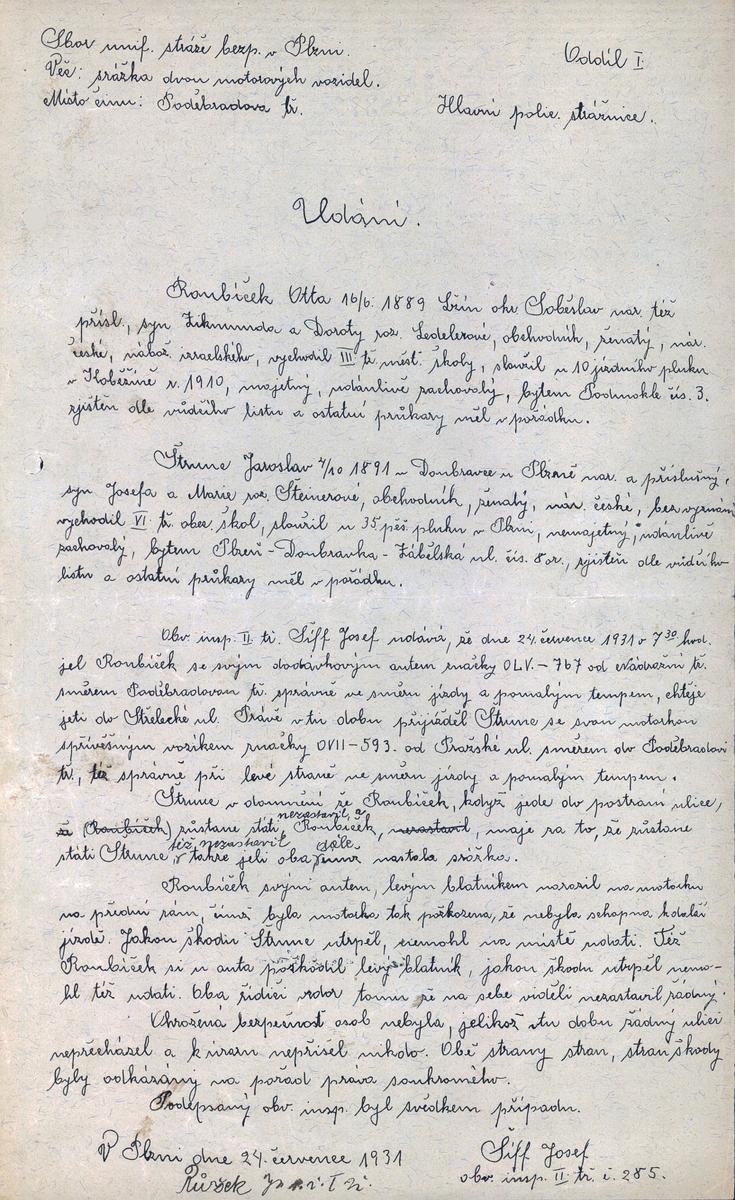 Sbor unif. stráže bezp. v Plzni. Oddíl I.
Věc: srážka dvou motorových vozidel.
Místo činu: Poděbradova tř. Hlavní polic. strážnice.
Udání.
Roubíček Otta 16/6. 1889 okr. Soběslav nar. též
přísl., syn Zikmunda a Doroty roz. Ledelerové, obchodník, ženatý, nár.
české, nábož. izraelského, vychodil III tř. měst. školy, sloužil u 10 jízdního pluku
v r. 1910, majetný, udánlivě zachovalý, bytem Podmokle čís. 3.
zjištěn dle vůdčího listu a ostatní průkazy měl v pořádku.
Štrunc Jaroslav 4/10 1891 v Doubravce u Plzně nar. a příslušný,
syn Josefa a Marie roz. Šteinerové, obchodník, ženatý, nár. české, bez vyznání
vychodil VI. tř. obec. škol, sloužil u 35 pěš. pluku v Plzni, nemajetný, udánlivě
zachovalý, bytem Plzeň - Doubravka - Zábělská ul. čís. 8 or., zjištěn dle vůdčího
listu a ostatní průkazy měl v pořádku.
Obv. insp. II. tř. Šíff Josef udává, že dne 24. července 1931 v 7 30 hod.
jel Roubíček se svým dodávkovým autem značky OLV. - 767 od Nádražní tř.
směrem Poděbradovou tř. správně ve směru jízdy a pomalým tempem, chtěje
jeti do Střelecké ul. Právě v tu dobu přijížděl Štrunc se svou motorkou
s přívěsným vozíkem značky OVII - 593. od Pražské ul. směrem do Poděbradovi
tř., též správně při levé straně ve směru jízdy a pomalým tempem.
Štrunc v domnění že Roubíček, když jede do postraní ulice,
že (Roubíček) zůstane státi, nezastavil a Roubíček, nezastavil, maje za to, že zůstane
státi Štrunc, též nezastavil takže jeli oba dále nastala srážka.
Roubíček svými autem, levým blatníkem narazil na motorku
na přední rám, čímž byla motorka tak poškozena, že nebyla schopna k další
jízdě. Jakou škodu Štrunc utrpěl, nemohl na místě udati. Též
Roubíček si u auta poškodil levý blatník, jakou škodu utrpěl nemo-
hl též udati. Oba řidiči vzdor tomu že na sebe viděli nezastavil žádný.
Ohrožená bezpečnost osob nebyla, jelikož v tu dobu žádný ulici
nepřecházel a k úrazu nepřišel nikdo. Obě strany stran, stran škody
byly odkázány na pořad práva soukromého.
Podepsaný obv. insp. byl svědkem případu.
V Plzni dne 24. července 1931 Šíff Josef
obv. insp. II. tř. č. 285.